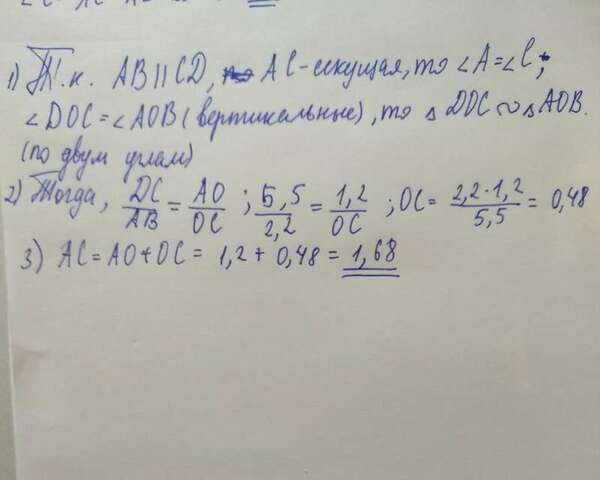 1) Т.к. AB||CD, AC-секущая, то ∠A=∠C;
∠DOC=∠AOB (вертикальные), то △DOC∾△AOB.
(по двум углам)
2) Тогда, DC/AB = AO/OC ; 5,5/2,2 = 1,2/OC ; OC= 2,2·1,2/5,5 = 0,48
3) AC=AO+OC= 1,2+0,48=1,68